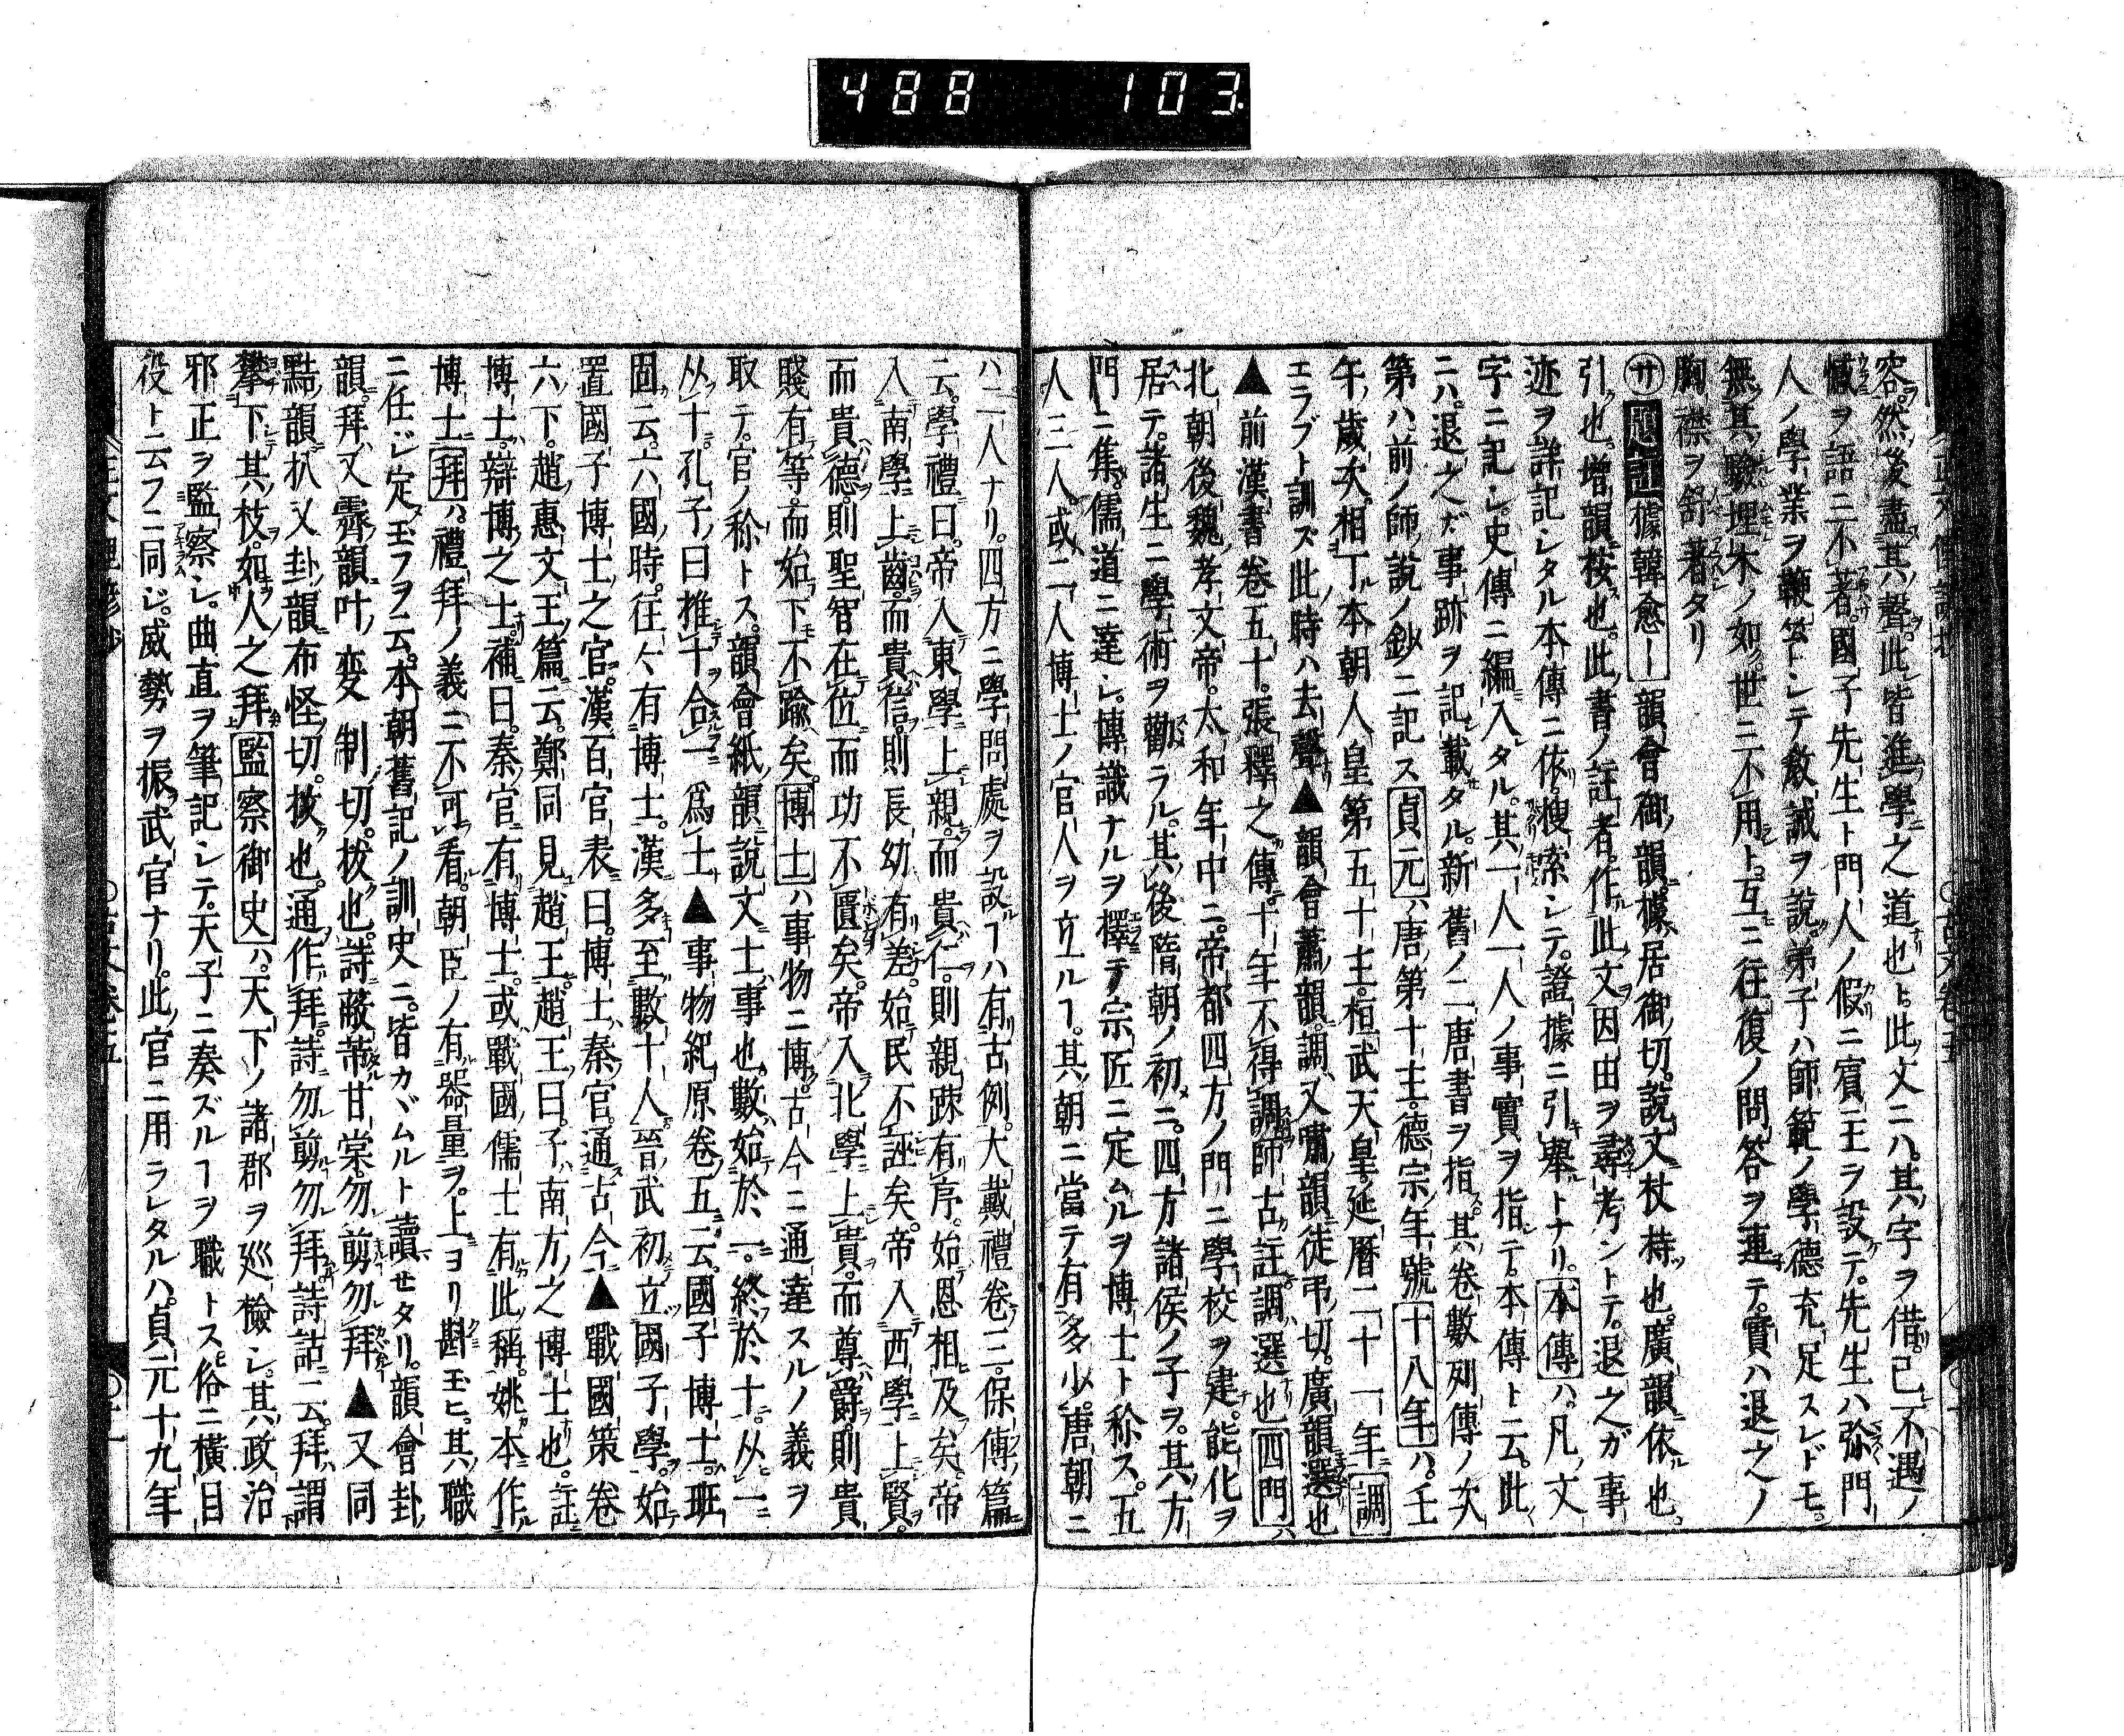 488 103
容。然後盡其聲。此皆進學之道也ト。此文ニハ。其字ヲ借。己不遇ノ
憾ヲ語ニ不著。國子先生ト門人ノ假ニ賓主ヲ設テ。先生ハ弥門
人ノ學業ヲ鞭笞シテ教誡ヲ說。弟子ハ師範ノ學德充足スレドモ。
無其驗埋木ノ如ク。世ニ不用ト。互ニ往復ノ問答ヲ連テ。實ハ退之ノ
胸襟ヲ舒著タリ
㊉題註據韓愈ー 韻會御韻據居御切。說文杖持也。廣韻依也。
引也。增韻按也。此書ノ註者。作此文因由ヲ尋考ントテ。退之ガ事
迹ヲ詳記シタル本傳ニ依。搜索シテ。證據ニ引舉トナリ。本傳ハ。凡文
字ニ記シ。史傳ニ編入タル。其一人一人ノ事實ヲ指テ。本傳ト云。此
ニハ。退之ガ事跡ヲ記載タル。新舊ノ二唐書ヲ指。其卷數列傳ノ次
第ハ。前ノ師說ノ鈔ニ記ス貞元ハ唐第十主。德宗年號十八年ハ。壬
午歲次。相丁本朝人皇第五十主。桓武天皇。延曆二十一年調
エラブト訓ズ此時ハ去聲▲韻會蕭韻。調又嘯韻徒弔切。廣韻選也
▲前漢書卷五十。張釋之傳。十年不得調師古註。調選也四門ハ
北朝後魏孝文帝。太和年中ニ。帝都四方ノ門ニ學校ヲ建。能化ヲ
居テ。諸生ニ學術ヲ勸ラル。其後隋朝ノ初ニ。四方諸侯ノ子ヲ。其方
門ニ集。儒道ニ達シ。博識ナルヲ擇テ宗匠ニ定ムルヲ博士ト称ス。五
人三人或二人博士ノ官人ヲ立ルヿ。其朝ニ當テ有多少。唐朝ニ
ハ二人ナリ。四方ニ學問處ヲ設ルヿハ有古例。大戴禮卷三。保傅篇
云。學禮曰。帝入東學上親。而貴仁。則親疎有序。始恩相及矣。帝
入南學上齒。而貴信。則長幼有差。始民不誣矣。帝入西學上賢。
而貴德。則聖智在位。而功不匱矣。帝入北學上貴。而尊爵。則貴
賤有等。而始下不踰矣。博士ハ事物ニ博。古今ニ通達スルノ義ヲ
取テ。官ノ称トス。韻會紙韻說文士事也。數始於一。終於十。从一
从十。孔子曰推十合一爲士▲事物紀原卷五云。國子博士。班
固云。六國時。往々有博士。漢多至數十人。晉武初立國子學。始
置國子博士之官。漢百官表曰。博士秦官。通古今▲戰國策卷
六下。趙惠文王篇云。鄭同見趙王。趙王曰。子南方之博士也。註
博士。辯博之士。補曰。秦官有博士。或戰國儒士有此稱。姚本作
博士拜ハ。禮拜ノ義ニ不可看。朝臣ノ有器量ヲ。上ヨリ斟玉ヒ。其職
ニ任ジ定玉フヲ云。本朝舊記ノ訓史ニ。皆カヾムルト讀セタリ。韻會卦
韻。拜又霽韻叶変制切。拔也。詩蔽芾甘棠。勿剪勿拜▲又同
點韻扒又卦韻布怪切。拔也。通作拜。詩勿剪勿拜。詩詁云。拜謂
攀下其枝。如人之拜監察御史ハ。天下ノ諸郡ヲ巡檢シ。其政治
邪正ヲ監察シ。曲直ヲ筆記シテ。天子ニ奏ズルヿヲ職トス。俗ニ橫目
役ト云フニ同ジ。威勢ヲ振武官ナリ。此官ニ用ラレタルハ。貞元十九年